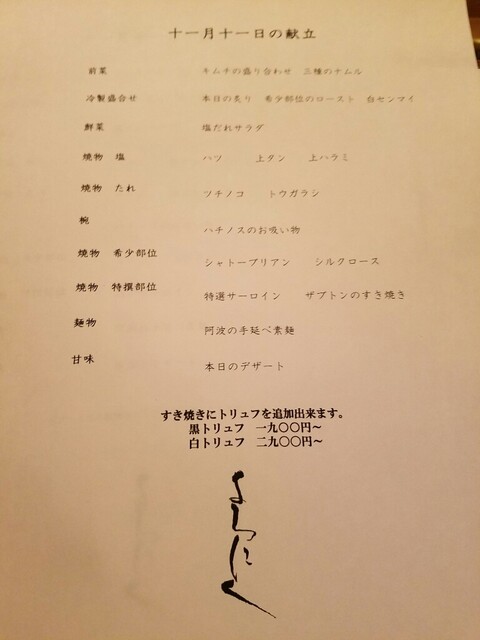 十一月十一日の献立
前菜 キムチの盛り合わせ 三種のナムル
冷製盛合せ 本日の炙り 希少部位のロースト 白センマイ
鮮菜 塩だれサラダ
焼物 塩 ハツ 上タン 上ハラミ
焼物 たれ ツチノコ トウガラシ
椀 ハチノスのお吸い物
焼物 希少部位 シャトーブリアン シルクロース
焼物 特撰部位 特選サーロイン ザブトンのすき焼き
麺物 阿波の手延べ素麺
甘味 本日のデザート
すき焼きにトリュフを追加出来ます。
黒トリュフ 一九〇〇円～
白トリュフ 二九〇〇円～
よろにく